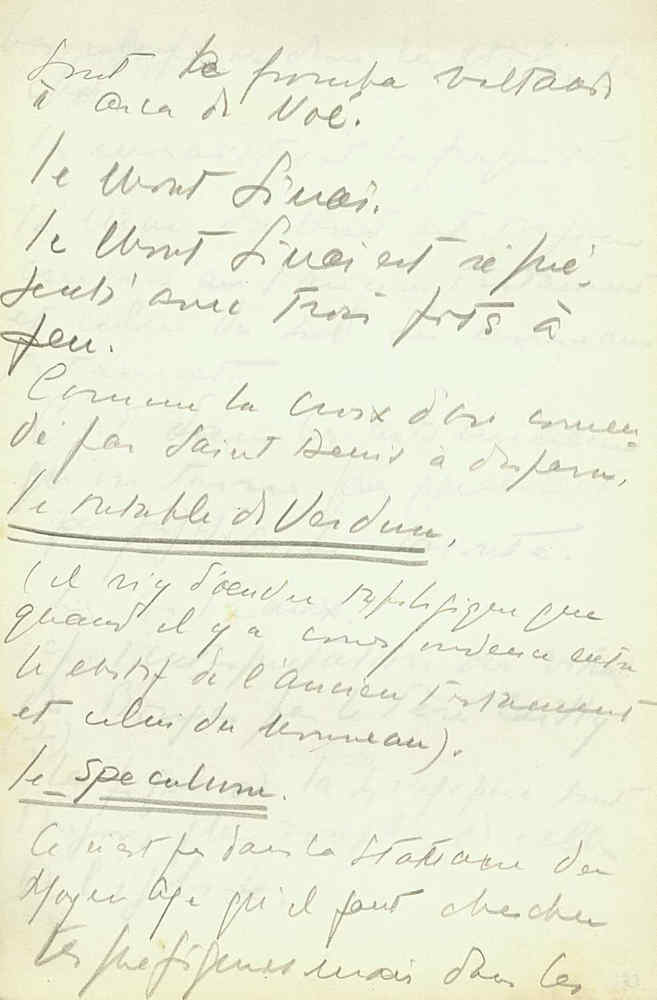 sont le
à arca di Noé.
le Mont Sinaï.
le Mont Sinaï est repré-
senté avec trois pots à
feu.
Comme la croix d'or
dé par Saint Denis à
le retable de Verdun.
(il n'y a d'ordre que
quand il y a correspondance entre
le motif de l'ancien testament
et celui du nouveau).
le speculum.
Ce n'est pas dans la statuaire du
Moyen Age qu'il faut chercher
les préfigures mais dans les